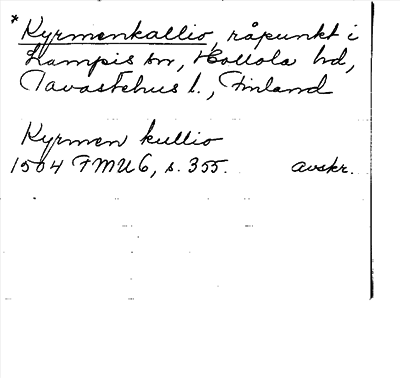 * Kyrmenkallio, råpunkt i
Lampis sn, Hollola hd,
Tavastehus l., Finland
Kyrmen kullio
1504 FMU 6, s. 355. avskr.